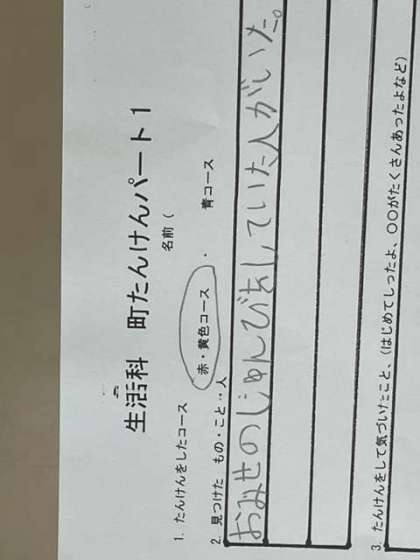 生活科　町たんけんパート１
名前（
1. たんけんをしたコース
赤・黄色コース　・　青コース
2. 見つけた　もの・こと・人
おみせのじゅんびをしていた人がいた。
3. たんけんをして気づいたこと、(はじめてしったよ、〇〇がたくさんあったよなど)